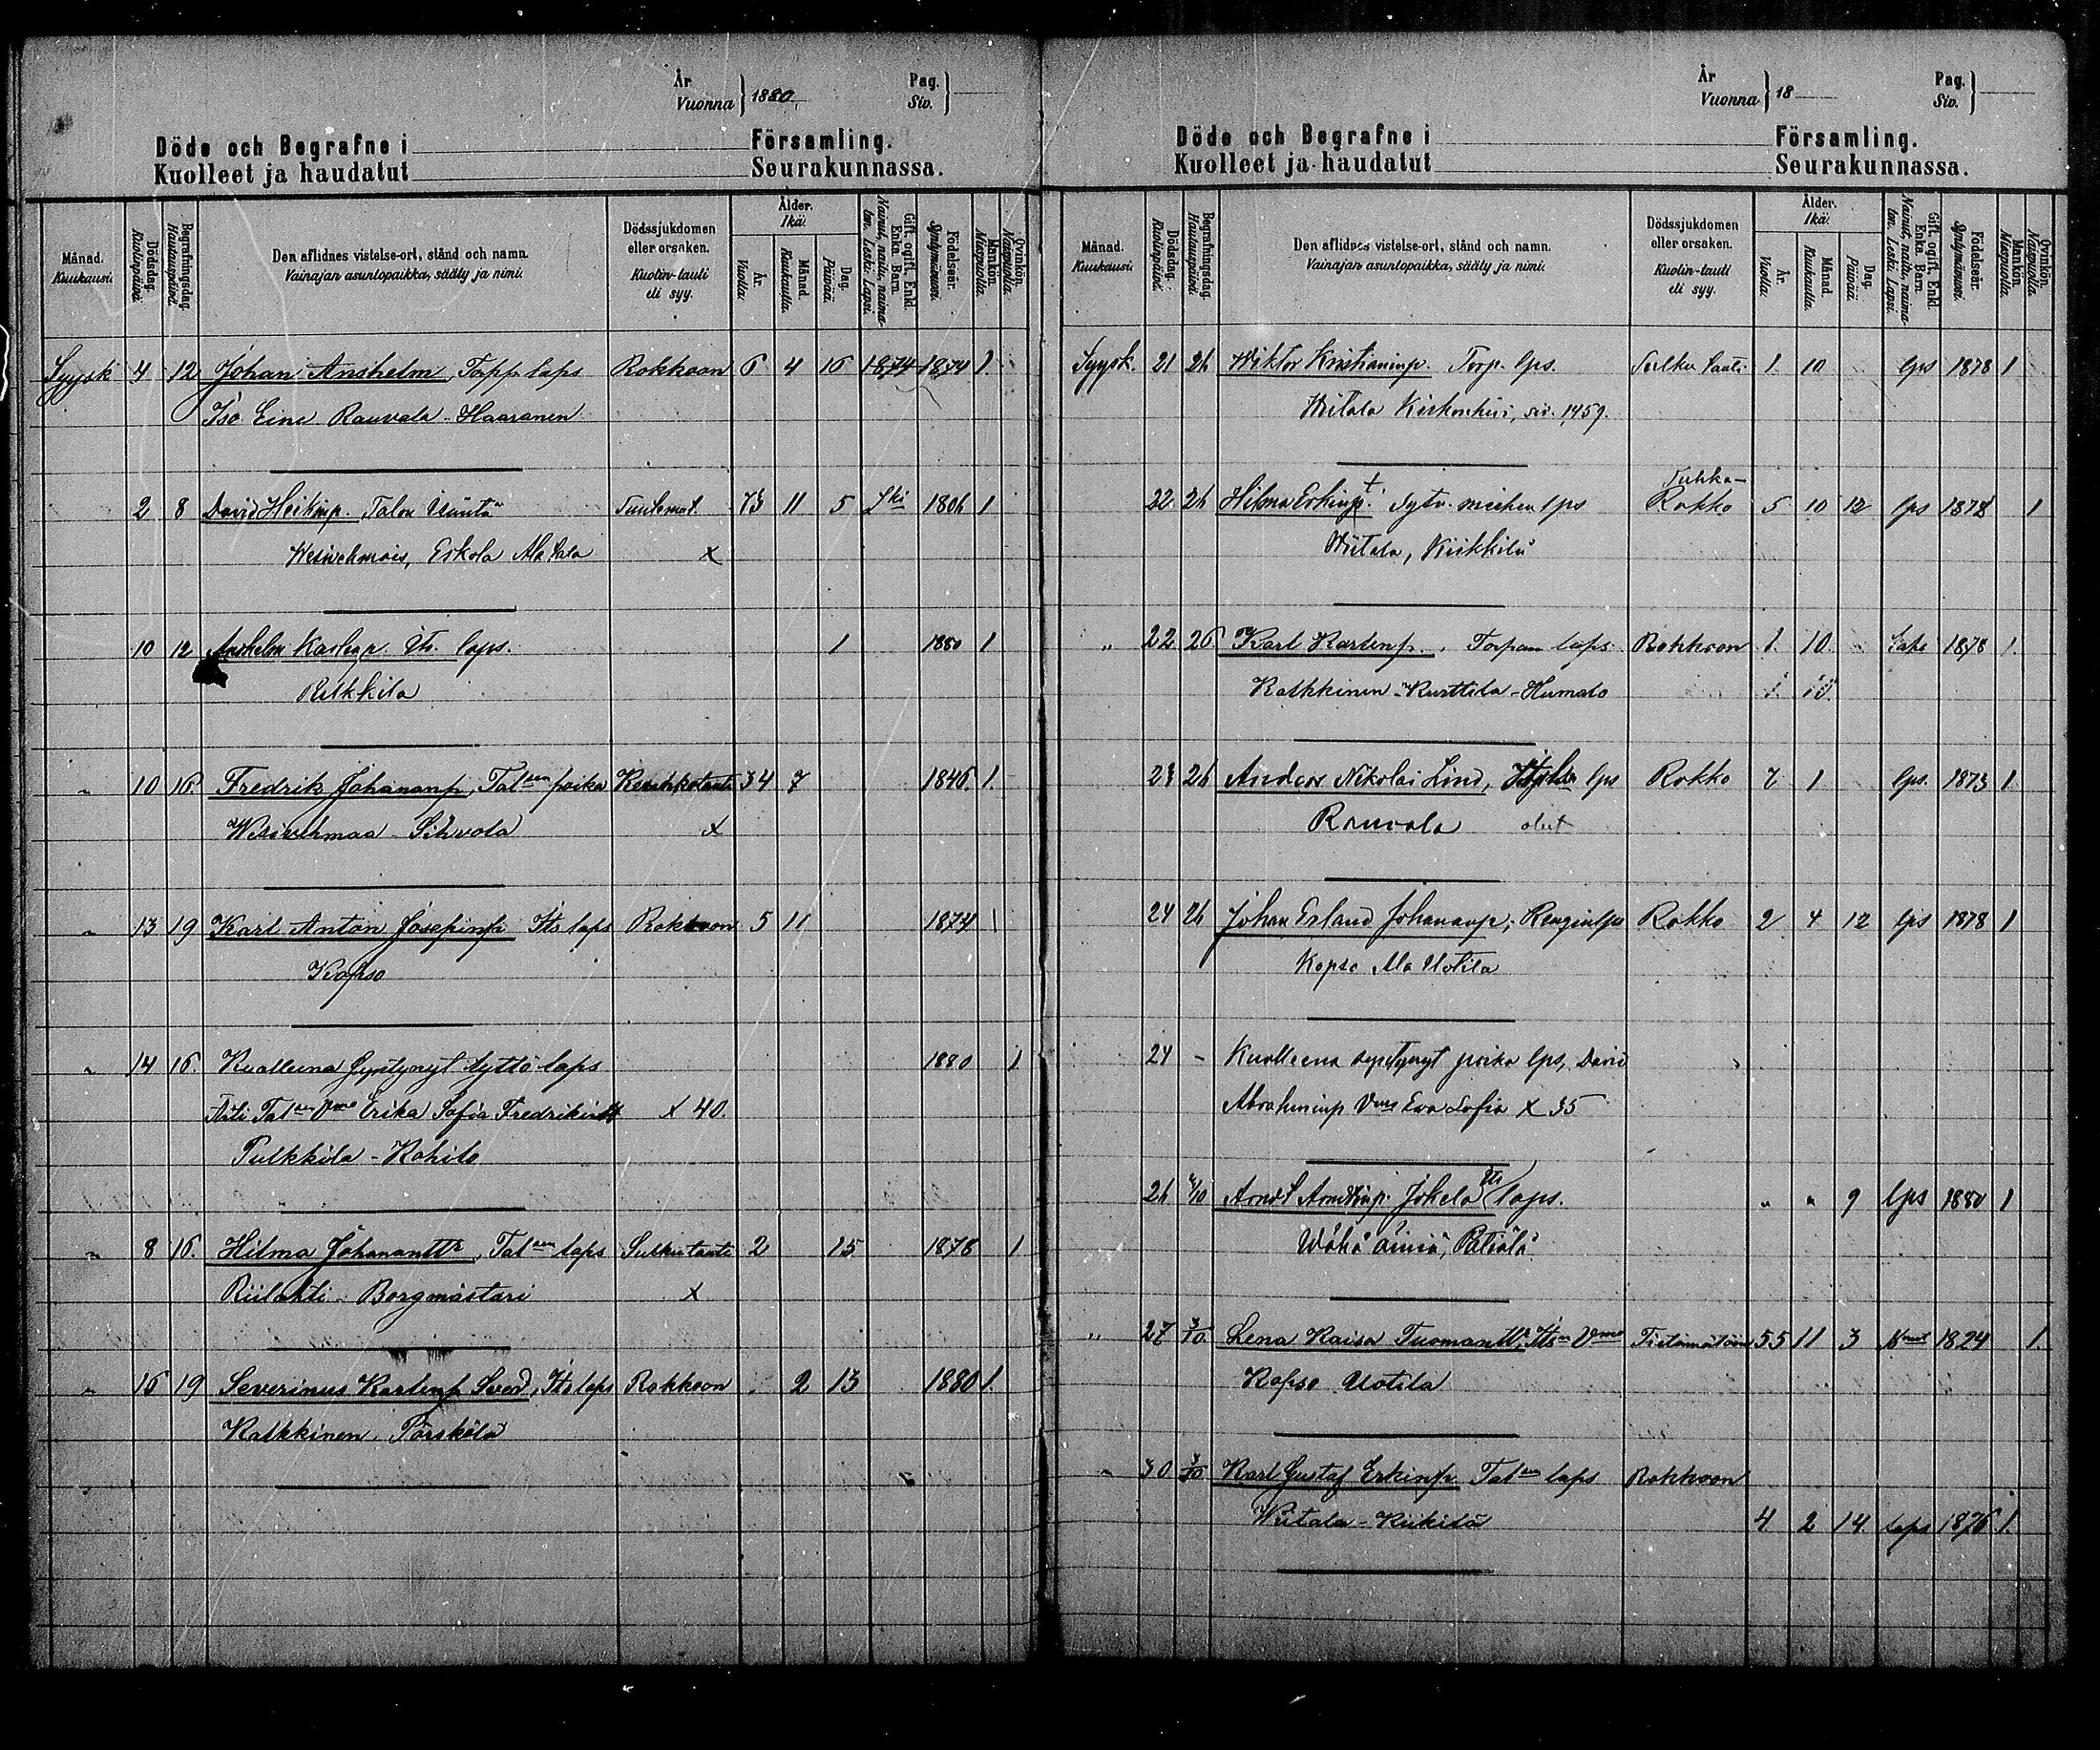 År
Vuonna } 1880.
Pag.
Siv. }
Döde och Begrafne i Församling.
Kuolleet ja haudatut Seurakunnassa.
Månad. Kuukausi.
Dödsdag. Kuolinpäivä.
Begrafningsdag. Hautauspäivä.
Den aflidnes vistelse-ort, stånd och namn.
Vainajan asuntopaikka, sääty ja nimi.
Dödssjukdomen eller orsaken.
Kuolin-tauti eli syy.
Ålder. Ikä.
År. Vuotta.
Månad. Kuukautta.
Dag. Päivää.
Gift, ogift, Enkl. Enka. Barn.
Nainut, naitu, naimaton. Leski. Lapsi.
Födelseår. Syntymävuosi.
Mankön. Miespuolia.
Qvinkön. Naispuolia.
Syysk 4 12 Johan Anshelm, Torpp laps Rokkoon 6 4 16 1874 1874 1
Iso Eine Rauvala - Haaranen
2 8 David Heikinp. Talon Isäntä 73 11 5 Lski 1806 1
Eskola Ala Tala x
10 12 Anshelm Karlenp. Its. laps. 1 1880 1
" 10 16 Fredrik Johananp, Tal poika Keuhkotauti 34 7 1846 1.
Wesivehmaa - Sihvola x
" 13 19 Karl Anton Josefinp Its laps Rokkoon 5 11 1874 1
Kopso
" 14 16. Kuolleena Syntynyt tyttö laps 1880 1
Äiti Tal Vmo Erika Sofia x 40.
Pulkkila - Kohila
" 8 16. Hilma Johanantt, Tal laps 2 15 1878 1
Riilahti - Borgmästari x
" 16 19 Severinus Karlenp Sved, Its laps Rokkoon . 2 13 1880 1.
Kalkkinen. Pärskölä
År
Vuonna } 18
Pag.
Siv. }
Döde och Begrafne i Församling.
Kuolleet ja haudatut Seurakunnassa.
Månad. Kuukausi.
Dödsdag. Kuolinpäivä.
Begrafningsdag. Hautauspäivä.
Den aflidnes vistelse-ort, stånd och namn.
Vainajan asuntopaikka, sääty ja nimi.
Dödssjukdomen eller orsaken.
Kuolin-tauti eli syy.
Ålder. Ikä.
År. Vuotta.
Månad. Kuukautta.
Dag. Päivää.
Gift, ogift, Enkl. Enka. Barn.
Nainut, naitu, naimaton. Leski. Lapsi.
Födelseår. Syntymävuosi.
Mankön. Miespuolia.
Qvinkön. Naispuolia.
Syysk. 21 26 Wiktor Kristianinp. Torp. lps. 1 10 lps 1878 1
Wiitala siv. 1459.
Tuhka-
22 26 Hilma Erkinp. miehen lps Rokko 5 10 12 lps 1
Wiitala, Kiikkilä
" 22 26 Karl Karlenp., Torpan laps. Rokkoon 1. 10. Laps 1878 1.
Kalkkinen - Kurttila - Humalo
23 26 Anders Nikolai Lind, lps Rokko 7 1 lps. 1873 1
Rauvala
24 26 Johan Erland Johananp; Renginlps Rokko 2 4 12 lps 1878 1
Kopso Ala Uotila
24 - Kuolleena syntynyt poika lps, David
Abrahminp Vmo Eva Sofia x 35
Jokela Its laps. " " 9 lps 1880 1
Wähä Äiniö,
" 27 3/10. Lena Kaisa Tuomantt, Its Vmo Tietämätöin 55 11 3 1824 1.
Kopso Uotila
" 30 3/10 Karl Gustaf Erkinp Tal laps Rokkoon
Wiitala - Kiikilä 4 2 14. laps 1876 1.